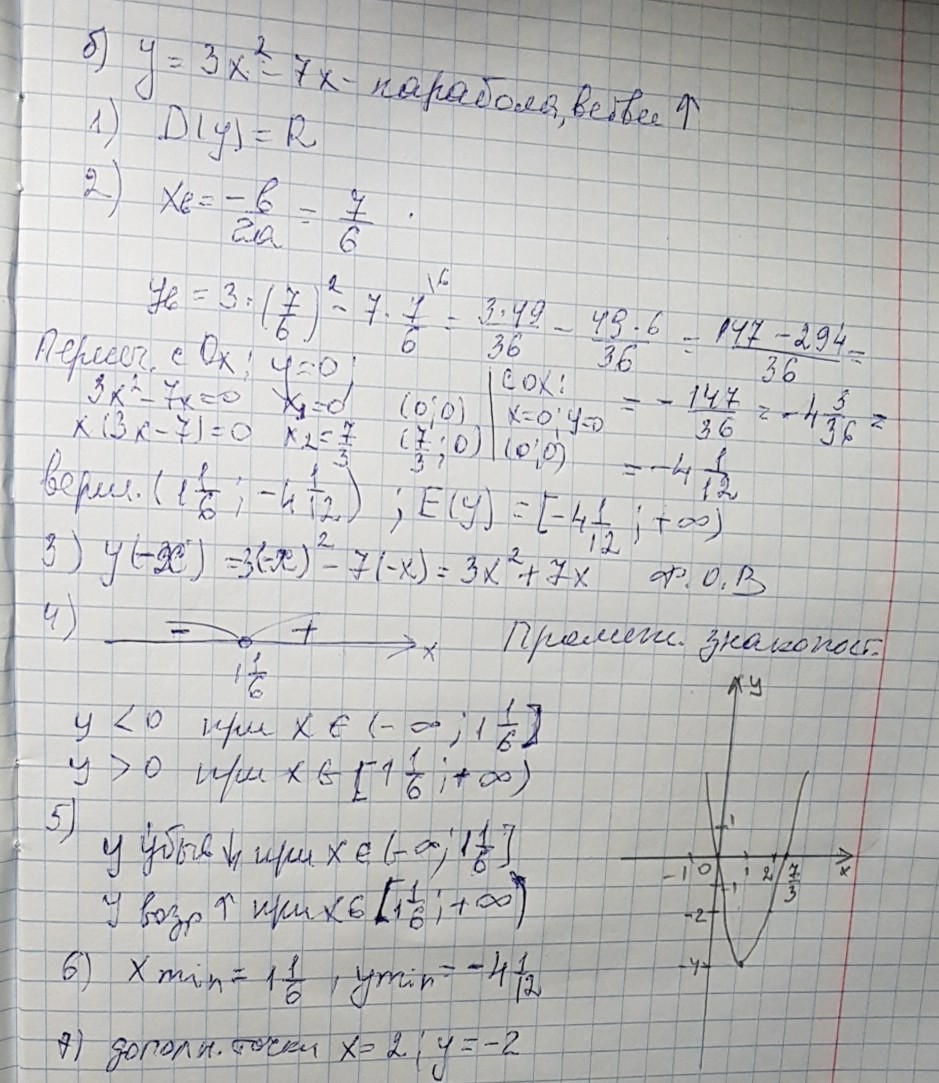 б) y = 3x² - 7x - парабола, ветви ↑
1) D(y) = R
2) xв = -b/2a = 7/6.
yв = 3·(7/6)² - 7·7/6 \6 = 3·49/36 - 49·6/36 = 147-294/36 =
= -147/36 = -4 3/36 =
= -4 1/12
Пересеч. с Ox: y=0
3x²-7x=0 x₁=0 (0;0)
x(3x-7)=0 x₂=7/3 (7/3; 0)
с OX:
x=0; y=0
(0;0)
верш. (1 1/6; -4 1/12); E(y) = [-4 1/12; +∞)
3) y(-x) = 3(-x)² - 7(-x) = 3x² + 7x Ф.О.В
4) - + x
1 1/6
Промеж. знакопост.
y < 0 при x ∈ (-∞; 1 1/6]
y > 0 при x ∈ [1 1/6; +∞)
5)
y убыв ↓ при x ∈ (-∞; 1 1/6]
y возр ↑ при x ∈ [1 1/6; +∞)
6) x min = 1 1/6, y min = -4 1/12
7) дополн. точки x = 2; y = -2
y
1
-1 0 1 2 7/3 x
-1
-2
-4